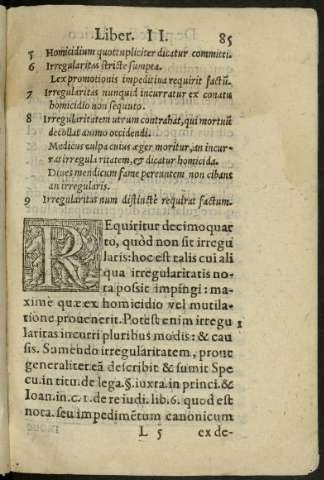 Liber. II. 85
5 Homicidium quotupliciter dicatur committi.
6 Irregularitas strictè sumpta.
Lex promotionis impeditiua requirit factũ.
7 Irregularitas nunquid incurratur ex conatu
homicidio non sequuto.
8 Irregularitatem utrum contrahat, qui mortuũ
decollat animo occidendi.
Medicus culpa cuius æger moritur, an incur-
rat irregularitatem, & dicatur homicida.
Diues mendicum fame pereuntem non cibans
an irregularis.
9 Irregularitas num distinctè requirat factum.
REquiritur decimoquar
to, quòd non sit irregu
laris: hoc est talis cui ali
qua irregularitatis no-
ta possit impingi: ma-
ximè quæ ex homicidio vel mutila-
tione prouenerit. Potest enim irregu 1
laritas incurri pluribus modis: & cau
sis. Sumendo irregularitatem, prout
generaliter eã describit & sumit Spe
cu. in titu. de lega. §. iuxta. in princi. &
Ioan. in. c. 1. de re iudi. lib. 6. quod est
nota. seu impedimẽtum canonicum
L 5 ex de-